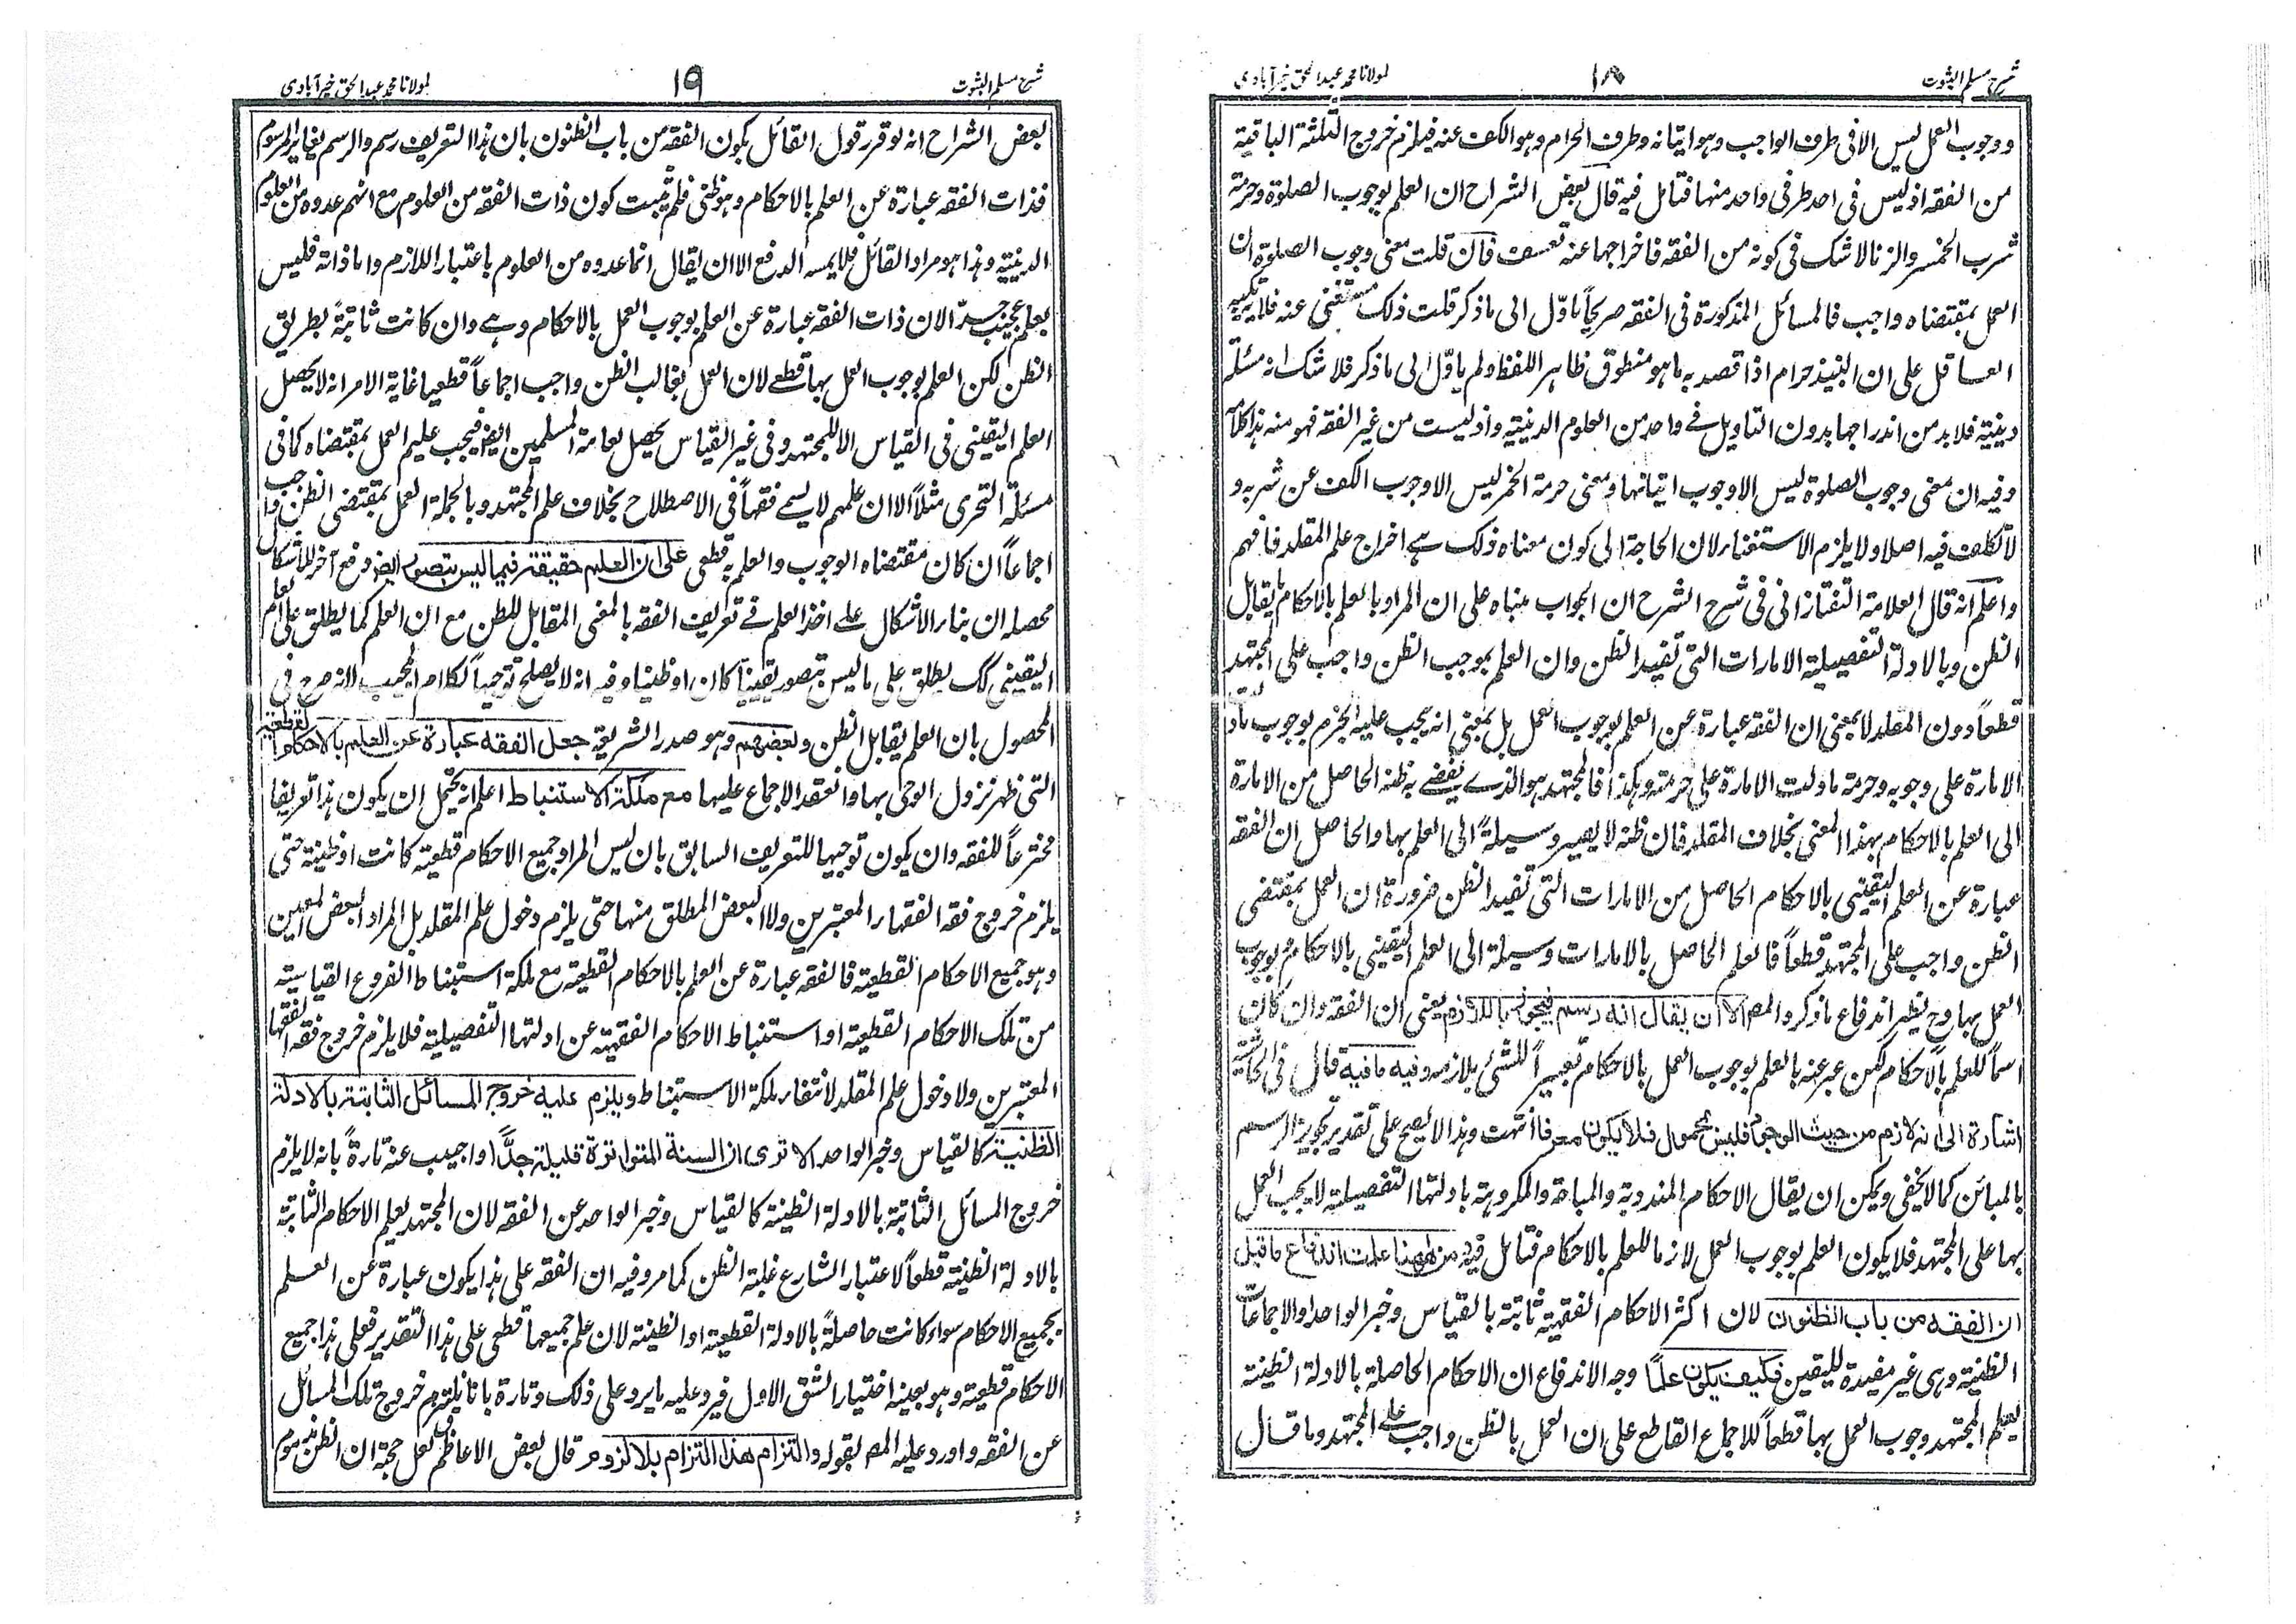 شرح مسلم الثبوت
١٨
لمولانا محمد عبد الحق خیرآبادی
ووجوب العمل ليس الا فی طرف الواجب وهو اتيانه وطرف الحرام وهو الكف عنه فيلزم خروج الثلثة الباقية
من الفقه اذ ليس فی احد طرفی واحد منها فتامل فيه قال بعض الشراح ان العلم بوجوب الصلوة وحرمة
شرب الخمر والزنا لا شك فی كونه من الفقه فاخراجها عنه تعسف فان قلت معنی وجوب الصلوة ان
العمل بمقتضاه واجب فالمسائل المذكورة فی الفقه صريحاً ماوّل الی ما ذكر قلت ذلك مستغنی عنه فلا يرتكبه
العاقل علی ان النبيذ حرام اذا قصد به ما هو منطوق ظاهر اللفظ ولم ياوّل الی ما ذكر فلا شك انه مسئلة
دينية فلا بد من اندراجها بدون التاويل فی واحد من العلوم الدينية واذ ليست من غير الفقه فهو منه هذا كلامه
وفيه ان معنی وجوب الصلوة ليس الا وجوب اتيانها ومعنی حرمة الخمر ليس الا وجوب الكف عن شربه و
لا تكلف فيه اصلا ولا يلزم الاستغناء لان الحاجة الی كون معناه ذلك هے اخراج علم المقلد فافهم
واعلم انه قال العلامة التفتازانی فی شرح الشرح ان الجواب مبناه علی ان المراد بالعلم بالاحكام ما يقابل
الظن وبالادلة التفصيلية الامارات التی تفيد الظن وان العلم بموجب الظن واجب علی المجتهد
قطعاً دون المقلد لا بمعنی ان الفقه عبارة عن العلم بوجوب العمل بل بمعنی انه يجب عليه الجزم بوجوب ما دلت
الامارة علی وجوبه وحرمة ما دلت الامارة علی حرمته وهكذا فالمجتهد هو الذے يفضے به ظنه الحاصل من الامارة
الی العلم بالاحكام بهذا المعنی بخلاف المقلد فان ظنه لا يصير وسيلةً الی العلم بها والحاصل ان الفقه
عبارة عن العلم اليقينی بالاحكام الحاصل من الامارات التی تفيد الظن ضرورة ان العمل بمقتضی
الظن واجب علی المجتهد قطعاً فالعلم الحاصل بالامارات وسيلة الی العلم اليقينی بالاحكام بوجوب
العمل بها وح يظهر اندفاع ما ذكروا المصـ الا ان يقال انه رسم فيجوز باللازم يعنی ان الفقه وان كان
اسماً للعلم بالاحكام لكن عبر عنه بالعلم بوجوب العمل بالاحكام تعبيراً للشئ بلازمه وفيه ما فيه قال فی الحاشية
اشارة الی انه لازم من حيث الوجود فليس بمحمول فلا يكون معرفا انتهت وهذا لا يصح علی تقدير تجويز الرسم
بالمبائن كما لا يخفی ويمكن ان يقال الاحكام المندوبة والمباحة والمكروهة بادلتها التفصيلية لا يجب العمل
بها علی المجتهد فلا يكون العلم بوجوب العمل لازما للعلم بالاحكام فتامل فيه ومن ههنا علمت اندفاع ما قيل
ان الفقه من باب الظنون لان اكثر الاحكام الفقهية ثابتة بالقياس وخبر الواحد والاجماعات
الظنية وهی غير مفيدة لليقين فكيف يكون علماً وجه الاندفاع ان الاحكام الحاصلة بالادلة الظنية
يعلم المجتهد وجوب العمل بها قطعاً للاجماع القاطع علی ان العمل بالظن واجب علی المجتهد وما قال
شرح مسلم الثبوت
١٩
لمولانا محمد عبد الحق خیرآبادی
بعض الشراح انه لو قرر قول القائل بكون الفقه من باب الظنون بان هذا التعريف رسم والرسم يغاير المرسوم
فذات الفقه عبارة عن العلم بالاحكام وهو ظنی فلم يثبت كون ذات الفقه من العلوم مع انهم عدوه من العلوم
الدينية وهذا هو مراد القائل فلا يمسه الدفع الا ان يقال انما عدوه من العلوم باعتبار اللازم واما ذاته فليس
بعلم عجيب جداً لان ذات الفقه عبارة عن العلم بوجوب العمل بالاحكام وهے وان كانت ثابتةً بطريق
الظن لكن العلم بوجوب العمل بها قطعے لان العمل بغالب الظن واجب اجماعاً قطعيا غاية الامر انه لا يحصل
العلم اليقينی فی القياس الا للمجتهد وفی غير القياس يحصل لعامة المسلمين ايضا فيجب عليهم العمل بمقتضاه كما فی
مسئلة التحری مثلاً الا ان علمهم لا يسمے فقهاً فی الاصطلاح بخلاف علم المجتهد وبالجملة العمل بمقتضی الظن واجب
اجماعاً ان كان مقتضاه الوجوب والعلم به قطعی علی ان العلم حقيقة فيما ليس بتصور ايضا دفع آخر للاشكال
محصله ان بناء الاشكال علے اخذ العلم فے تعريف الفقه بالمعنی المقابل للظن مع ان العلم كما يطلق علی العلم
اليقينی كك يطلق علی ما ليس بتصور يقينياً كان او ظنيا وفيه انه لا يصلح توجيهاً لكلام المجيب لانه صرح فی
المحصول بان العلم يقابل الظن وبعضهم وهو صدر الشريعة جعل الفقه عبارة عن العلم بالاحكام القطعية
التی ظهر نزول الوحی بها وانعقد الاجماع عليها مع ملكة الاستنباط اعلم انه يحتمل ان يكون هذا تعريفا
مخترعاً للفقه وان يكون توجيها للتعريف السابق بان ليس المراد جميع الاحكام قطعية كانت او ظنية حتی
يلزم خروج فقه الفقهاء المعتبرين ولا البعض المطلق منها حتی يلزم دخول علم المقلد بل المراد البعض المعين
وهو جميع الاحكام القطعية فالفقه عبارة عن العلم بالاحكام القطعية مع ملكة استنباط الفروع القياسية
من تلك الاحكام القطعية او استنباط الاحكام الفقهية عن ادلتها التفصيلية فلا يلزم خروج فقه الفقهاء
المعتبرين ولا دخول علم المقلد لانتفاء ملكة الاستنباط ويلزم عليه خروج المسائل الثابتة بالادلة
الظنية كالقياس وخبر الواحد الا تری ان السنة المتواترة قليلة جدًّا واجيب عنه تارةً بانه لا يلزم
خروج المسائل الثابتة بالادلة الظنية كالقياس وخبر الواحد عن الفقه لان المجتهد يعلم الاحكام الثابتة
بالادلة الظنية قطعاً لاعتبار الشارع غلبة الظن كما مر وفيه ان الفقه علی هذا يكون عبارة عن العلم
بجميع الاحكام سواء كانت حاصلةً بالادلة القطعية او الظنية لان علم جميعها قطعی علی هذا التقدير فعلی هذا جميع
الاحكام قطعية وهو بعينه اختيار الشق الاول فيرد عليه ما يرد علی ذلك وتارة بانا نلتزم خروج تلك المسائل
عن الفقه واورد عليه المصـ بقوله والتزام هذا التزام بلا لزوم قال بعض الاعاظم لعل حجة ان الظن مذموم